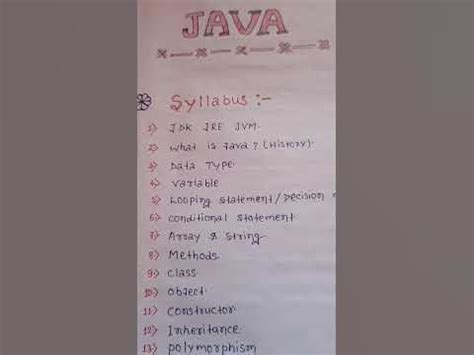 JAVA
Syllabus :-
1) JDK JRE JVM.
2) What is Java? (History)
3) Data Type
4) Variable
5) Looping Statement/Decision
6) Conditional Statement
7) Array & String
8) Methods
9) Class
10) Object
11) Constructor
12) Inheritance.
13) polymorphism